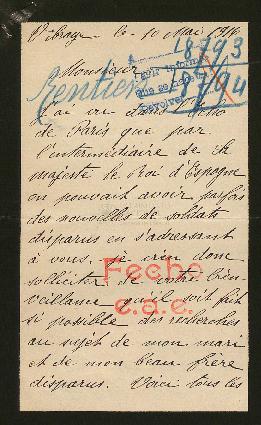 Vibraye le 10 Mai 1916
18793
8794
Monsieur
Rentier
J'ai vu dans l'Echo
de Paris que par
l'intermédiaire de Sa
majesté le Roi d'Espagne
on pouvait avoir parfois
des nouvelles de soldats
disparus en s'adressant
à vous. je viens donc
Fecho
solliciter de votre bien
veillance qu'il soit fait
e.a.e.
si possible des recherches
au sujet de mon mari
et de mon beau frère
disparus. Voici tous les